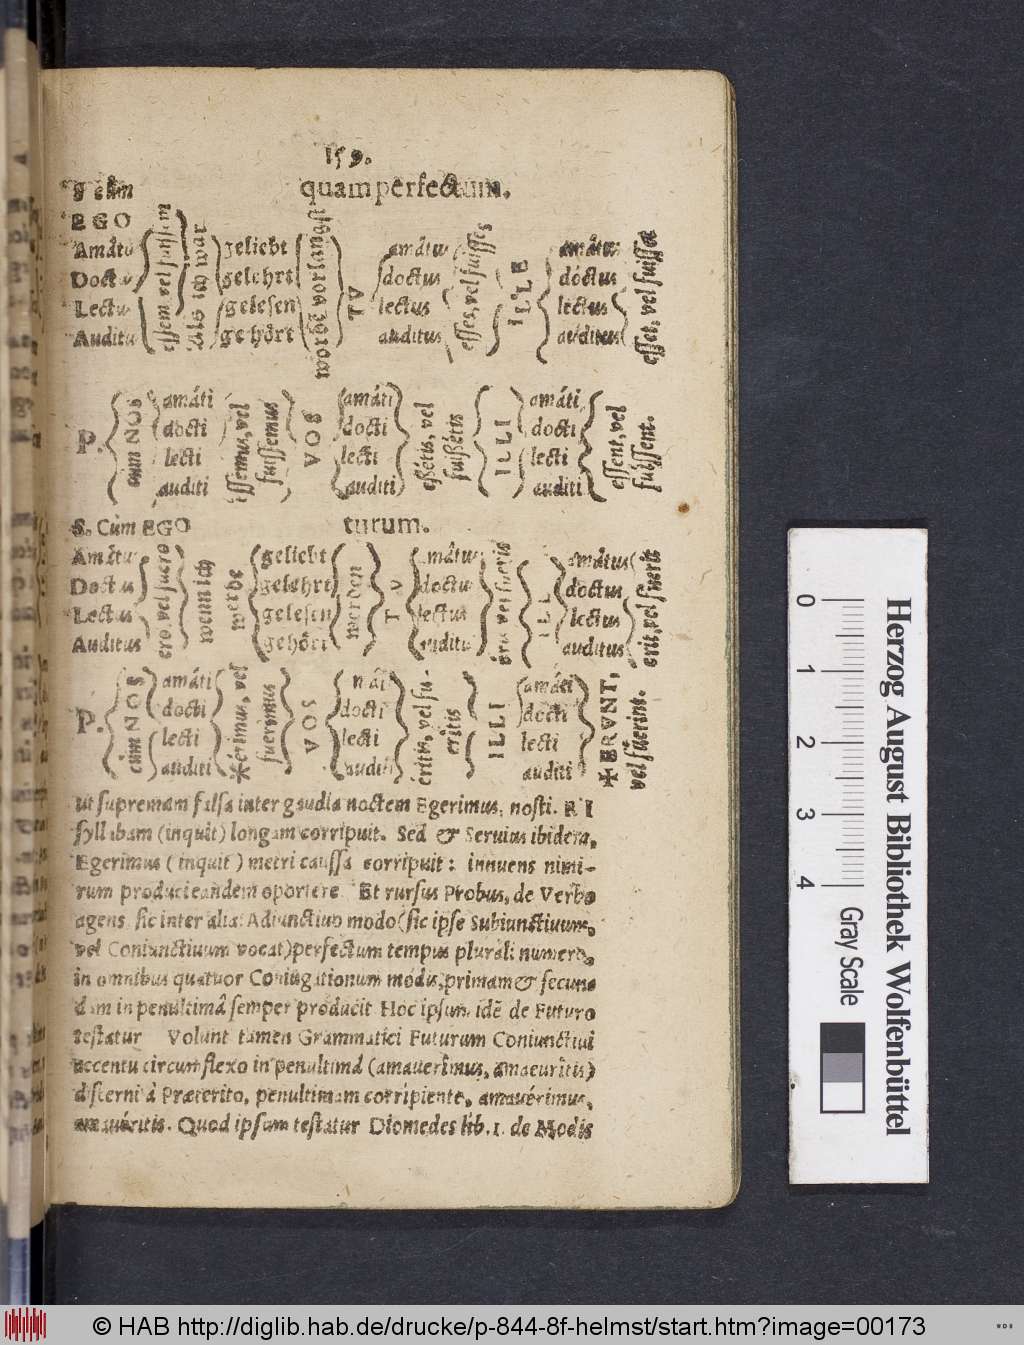 159.
S cùm quamperfectum.
EGO
Amátu geliebt amâtus amâtus
Doctu gelehrt doctus dóctus
Lectu gelesen lectus lectus
Auditu gehört auditus auditus
essem, vel fuissem
Als ich war
worden
TV
esses, vel fuisses
ILLE
esset, vel fuisset
P. cum NOS
amáti amáti amáti
docti docti docti
lecti lecti lecti
auditi auditi auditi
essemus, vel fuissemus
VOS
essétis, vel fuissétis
ILLI
essent, vel fuissent.
S. Cùm EGO turum.
Amátu geliebt amâtus amâtus
Doctus gelehrt doctus doctus
Lectus gelesen lectus lectus
Auditus gehört auditu auditus
ero vel fuero
wenn ich werde
worden
TV
eris vel fueris
ILL
erit, vel fuerit
P. cùm NOS
amáti amáti
docti docti docti
lecti lecti lecti
auditi auditi auditi
*erimus, vel fuerimus
VOS
eritis, vel fueritis
ILLI
✠ ERVNT, vel fúerint.
ut supremam falsa inter gaudia noctem Egerimus, nosti. RI
syllabam (inquit) longam corripuit. Sed & Seruius ibidem,
Egerimus ( inquit ) metri caussa corripuit : innuens nimi-
rum producieandem oportere Et rursus Probus, de Verbo
agens, sic inter alia: Adiunctiuo modo (sic ipse Subiunctiuum,
vel Coniunctiuum vocat) perfectum tempus plurali numero,
in omnibus quatuor Coniugationum modis, primam & secun-
dam in penultimâ semper producit Hoc ipsum idē de Futuro
testatur Volunt tamen Grammatici Futurum Coniunctiui
accentu circumflexo in penultimâ (amauerîmus, amauerîtis)
discerni à Præterito, penultimam corripiente, amauérimus,
amauéritis. Quod ipsum testatur Diomedes lib. 1. de Modis
0 1 2 3 4
Gray Scale
Herzog August Bibliothek Wolfenbüttel
© HAB http://diglib.hab.de/drucke/p-844-8f-helmst/start.htm?image=00173